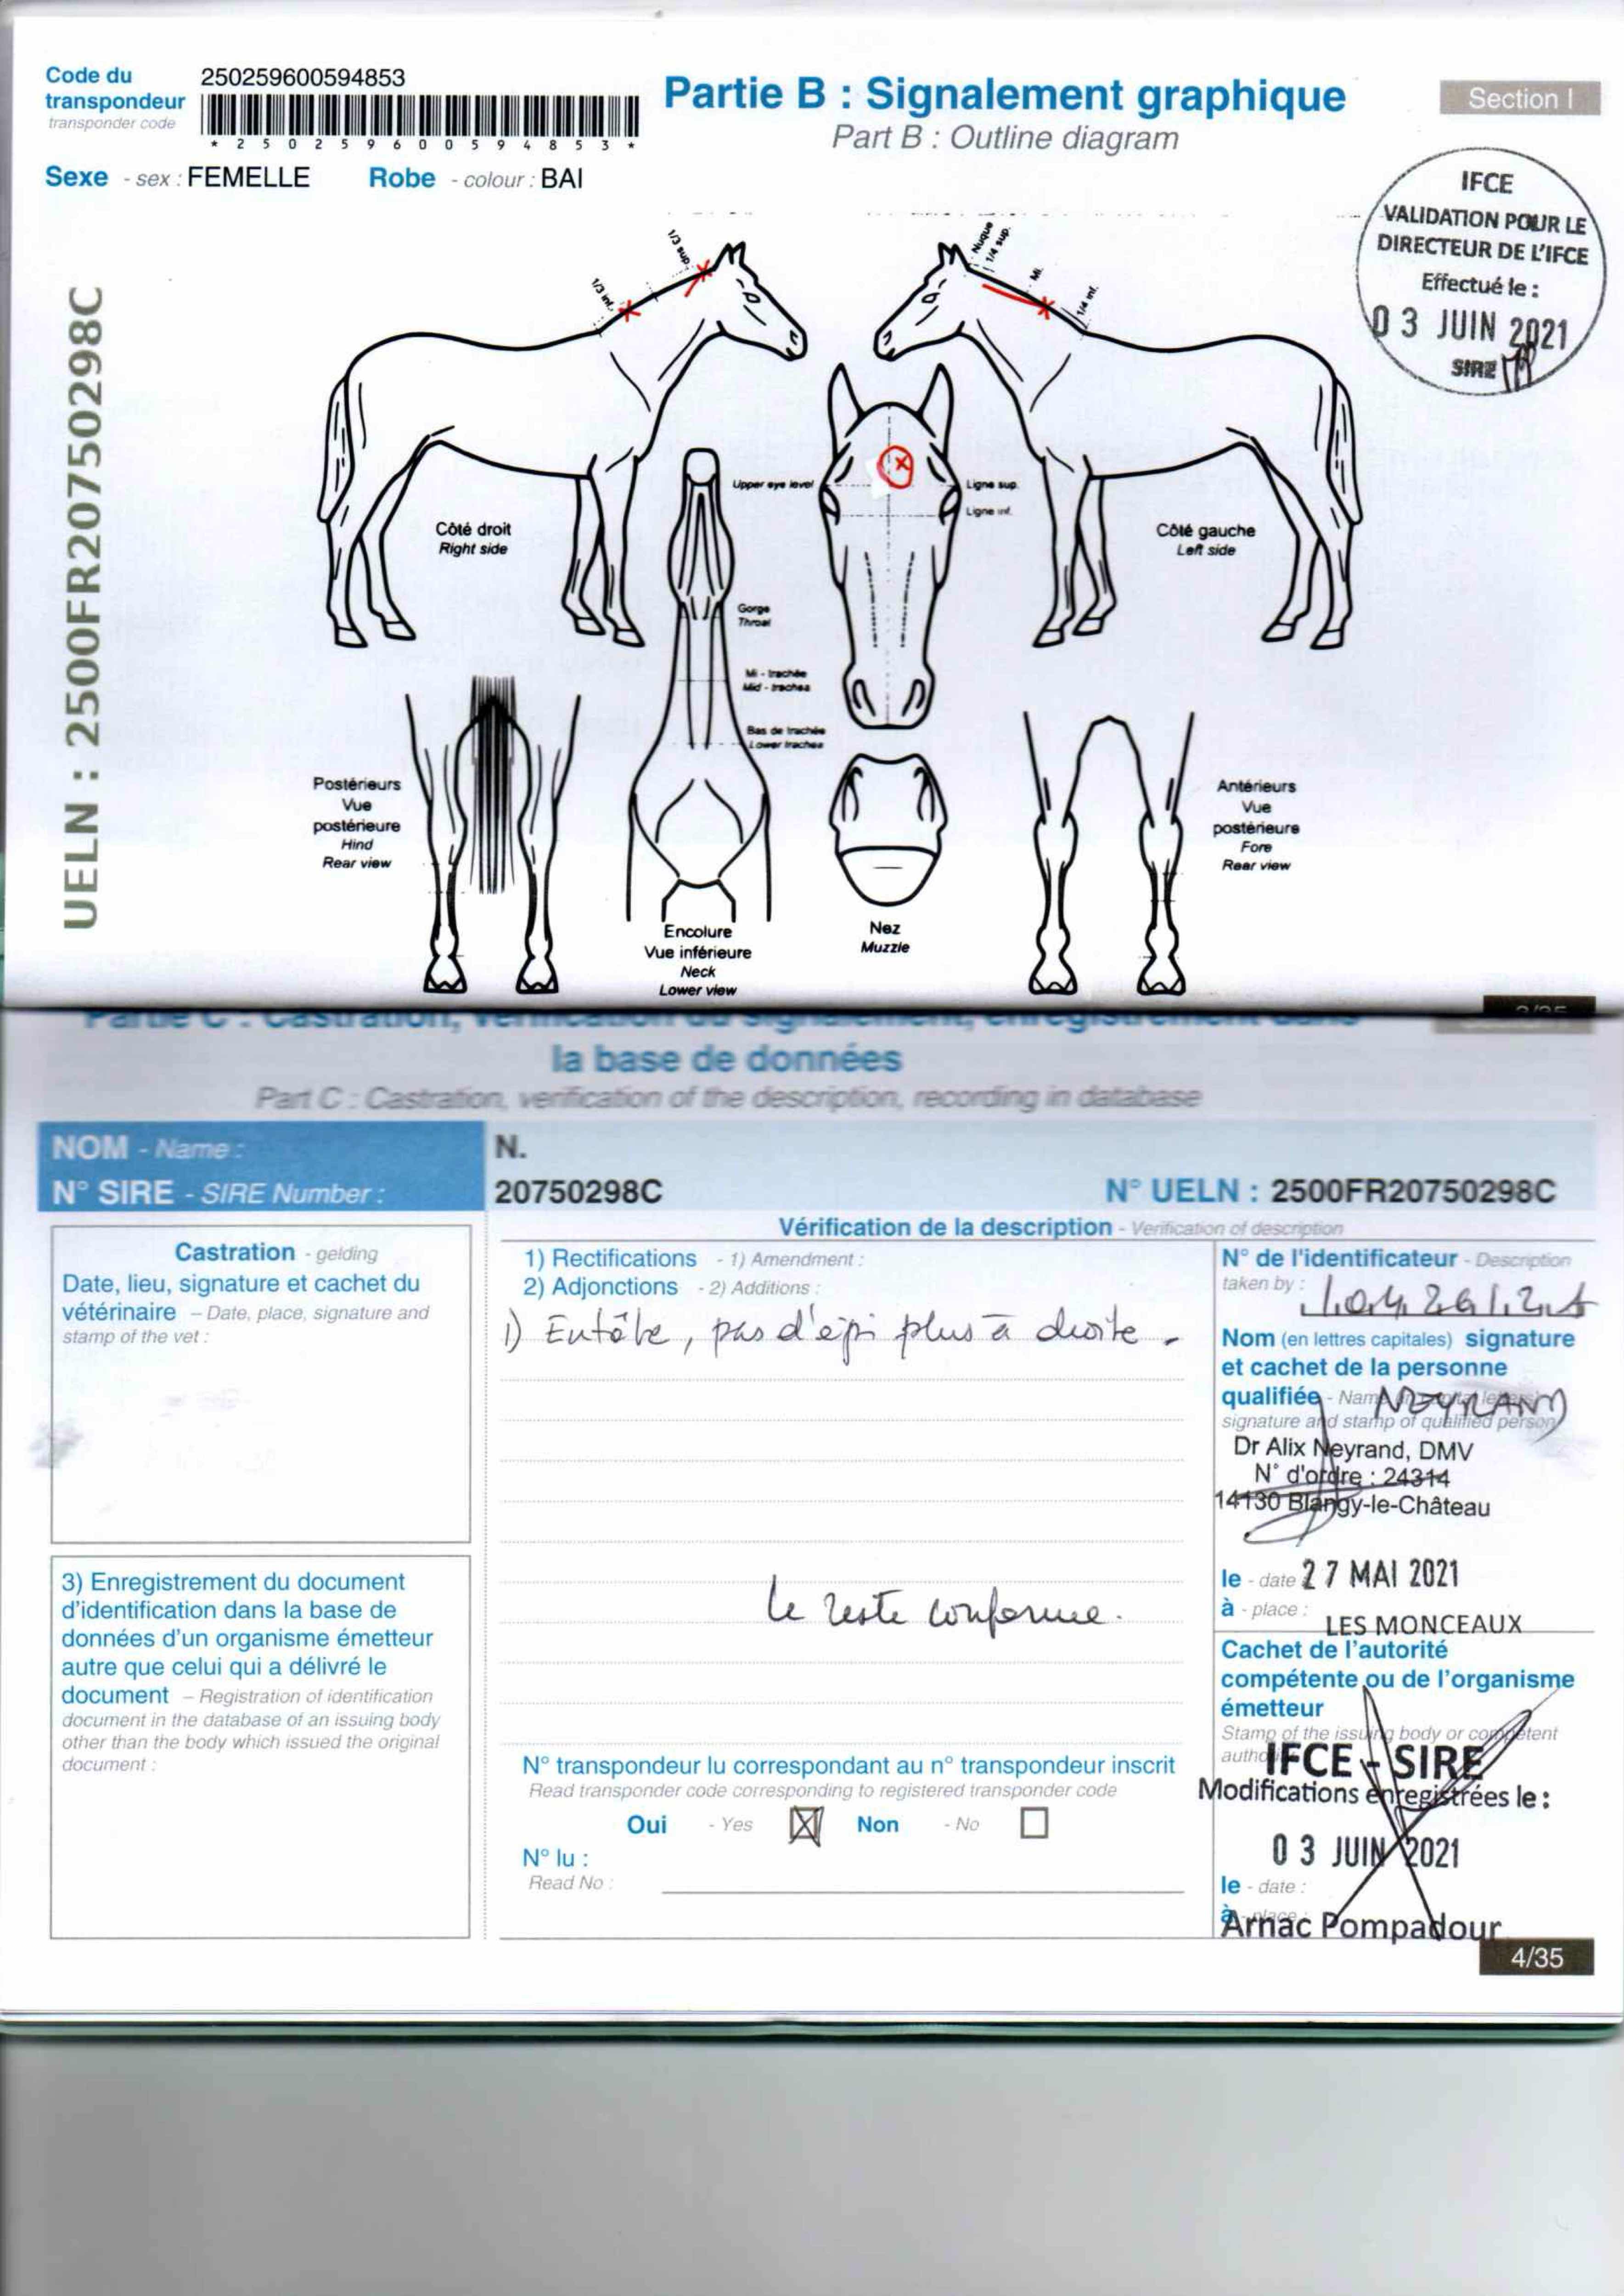 Code du
transpondeur
transponder code
250259600594853
* 2 5 0 2 5 9 6 0 0 5 9 4 8 5 3 *
Partie B : Signalement graphique
Part B : Outline diagram
Section I
Sexe - sex : FEMELLE Robe - colour : BAI
IFCE
VALIDATION POUR LE
DIRECTEUR DE L'IFCE
Effectué le :
03 JUIN 2021
SIRE
UELN : 2500FR20750298C
1/3 inf.
1/3 sup.
Nuque
1/4 sup.
Mi.
1/4 inf.
Upper eye level
Ligne sup.
Ligne inf.
Côté droit
Right side
Côté gauche
Left side
Gorge
Throat
Mi - trachée
Mid - trachea
Bas de trachée
Lower trachea
Postérieurs
Vue
postérieure
Hind
Rear view
Antérieurs
Vue
postérieure
Fore
Rear view
Encolure
Vue inférieure
Neck
Lower view
Nez
Muzzle
Partie C : Castration, vérification du signalement, enregistrement dans
la base de données
Part C : Castration, verification of the description, recording in database
NOM - Name : N.
N° SIRE - SIRE Number : 20750298C N° UELN : 2500FR20750298C
Castration - gelding
Date, lieu, signature et cachet du
vétérinaire – Date, place, signature and
stamp of the vet :
Vérification de la description - Verification of description
1) Rectifications - 1) Amendment :
2) Adjonctions - 2) Additions :
1) En tête, pas d'épi plus à droite.
Le reste conforme.
N° de l'identificateur - Description
taken by :
Nom (en lettres capitales) signature
et cachet de la personne
qualifiée - Name (in capital letters)
signature and stamp of qualified person
NEYRAND
Dr Alix Neyrand, DMV
N° d'ordre : 24314
14130 Blangy-le-Château
le - date 27 MAI 2021
à - place : LES MONCEAUX
3) Enregistrement du document
d'identification dans la base de
données d'un organisme émetteur
autre que celui qui a délivré le
document – Registration of identification
document in the database of an issuing body
other than the body which issued the original
document :
N° transpondeur lu correspondant au n° transpondeur inscrit
Read transponder code corresponding to registered transponder code
Oui - Yes Non - No
N° lu :
Read No :
Cachet de l'autorité
compétente ou de l'organisme
émetteur
Stamp of the issuing body or competent
IFCE - SIRE
Modifications enregistrées le :
03 JUIN 2021
le - date :
à - place :
Arnac Pompadour
4/35